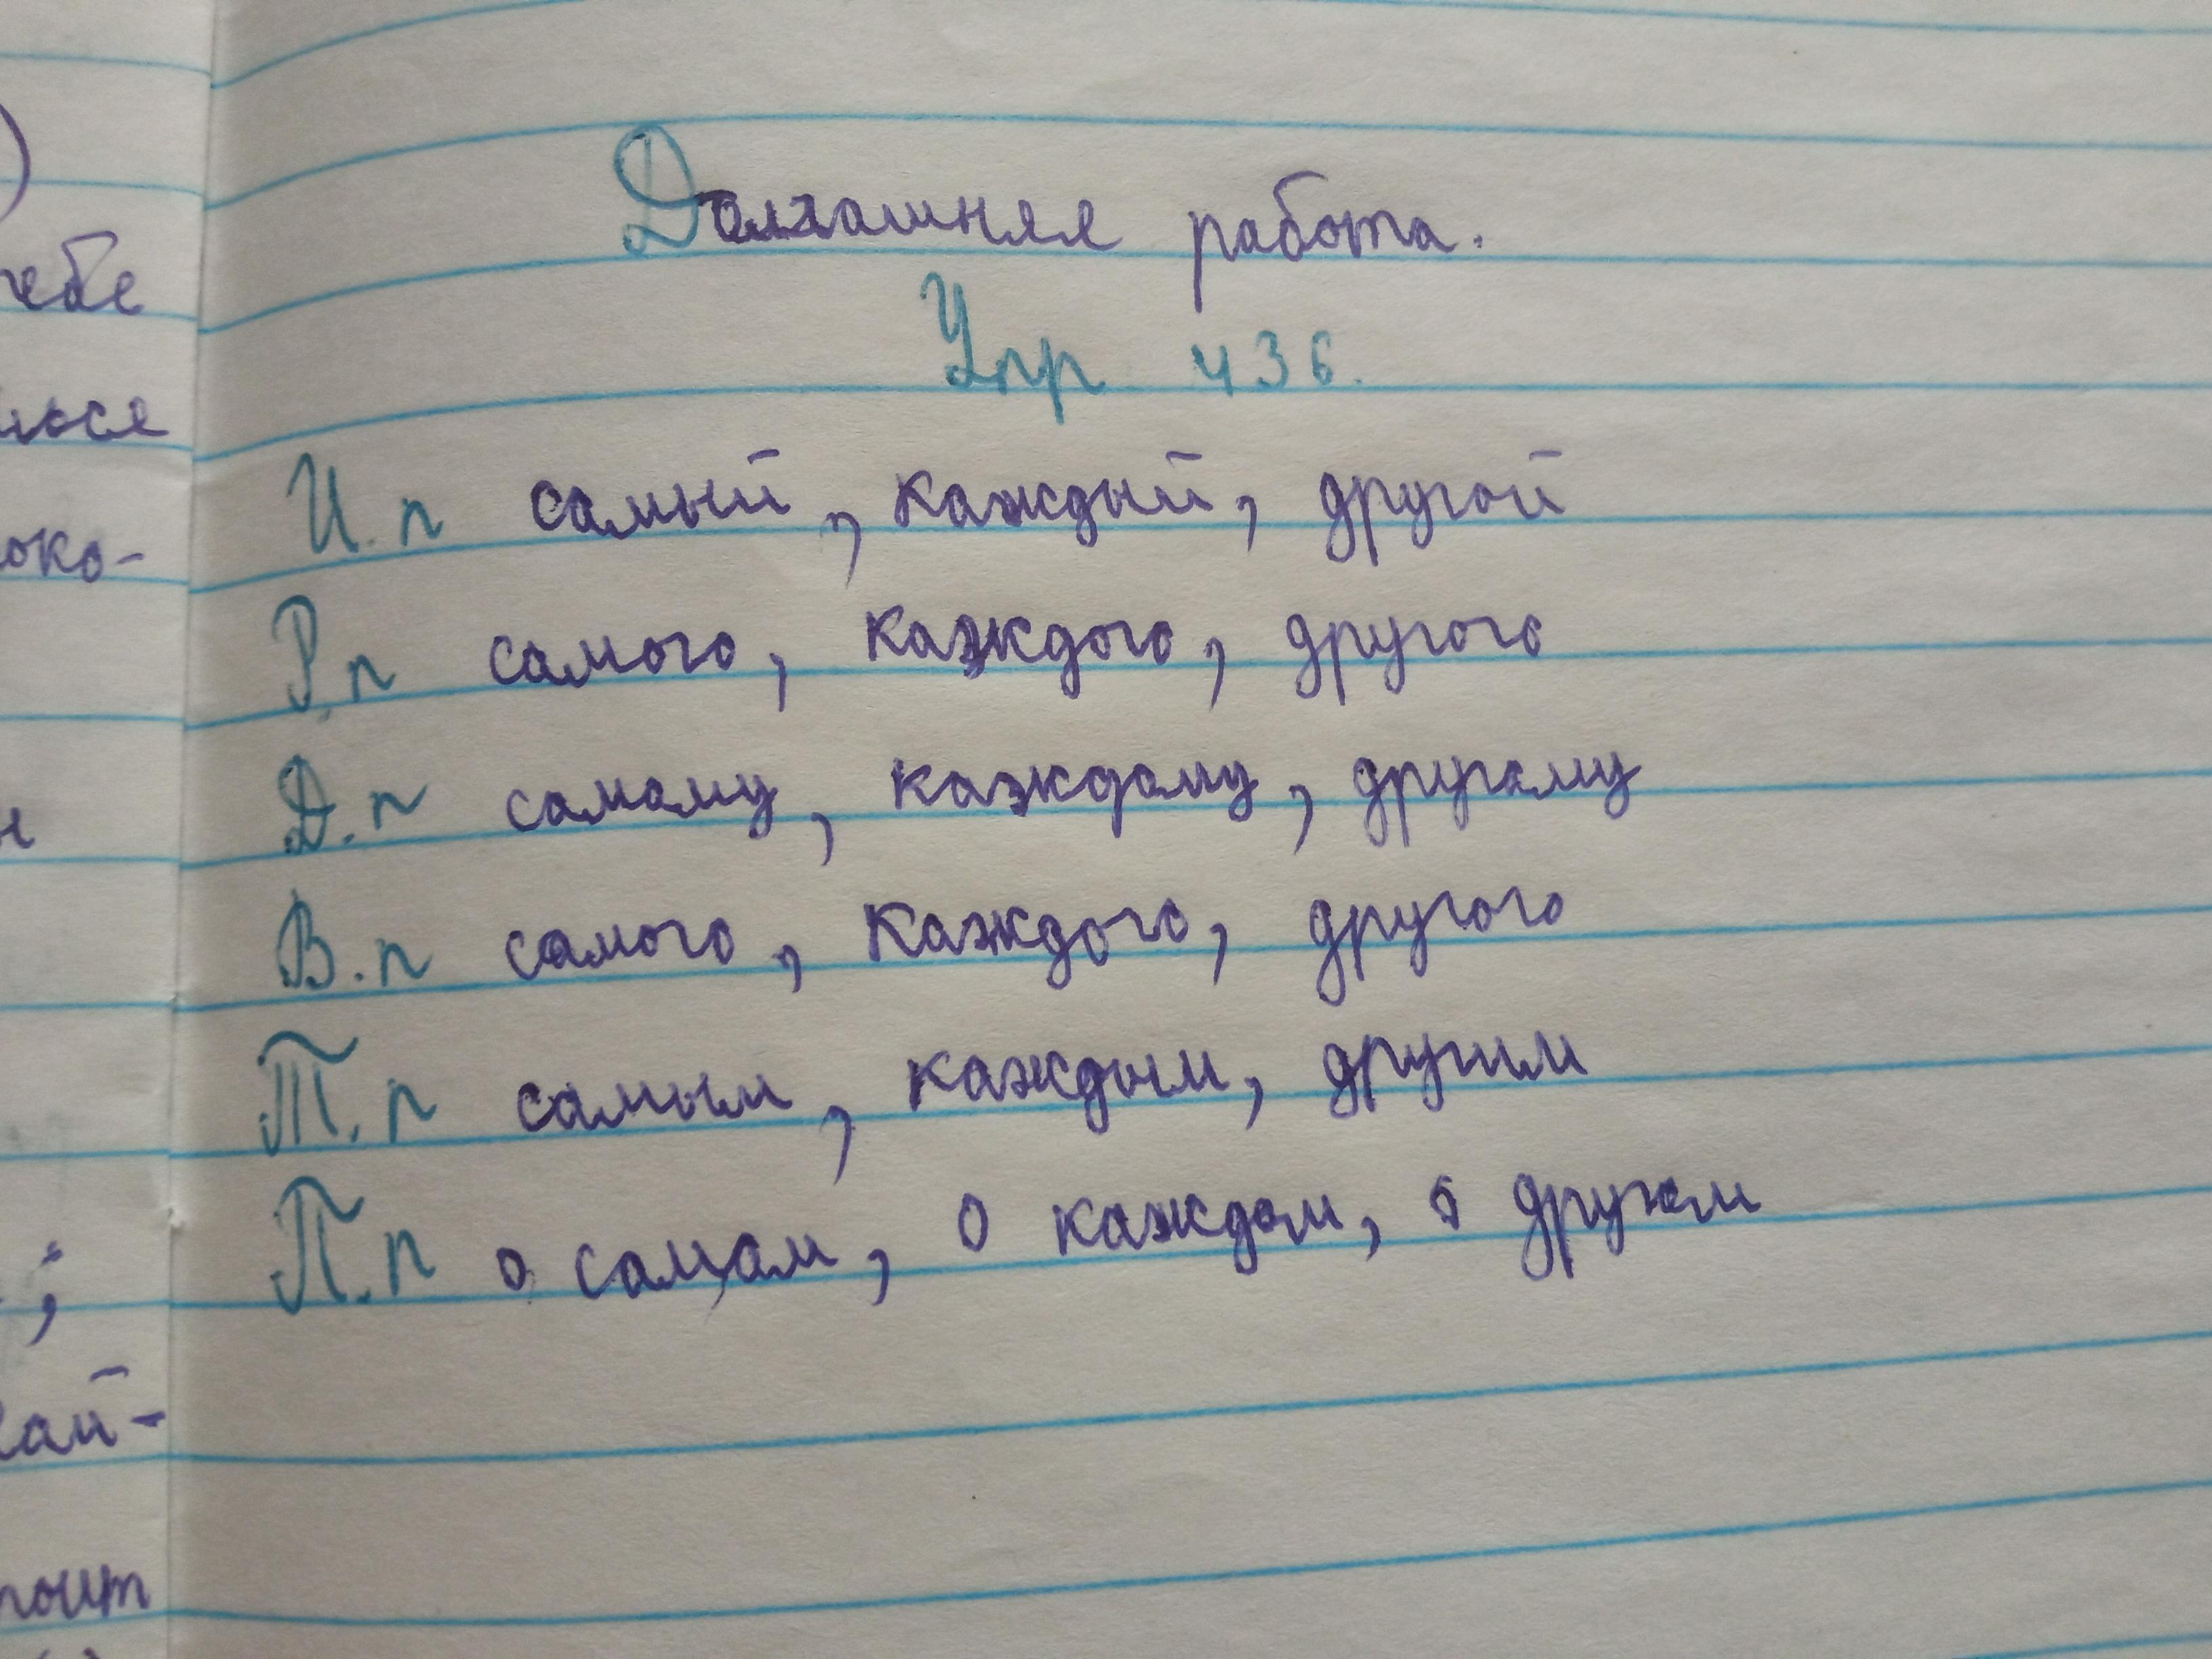 Домашняя работа.
Упр 436.
И.п самый, каждый, другой
Р.п самого, каждого, другого
Д.п самому, каждому, другому
В.п самого, каждого, другого
Т.п самым, каждым, другим
П.п о самом, о каждом, о другом